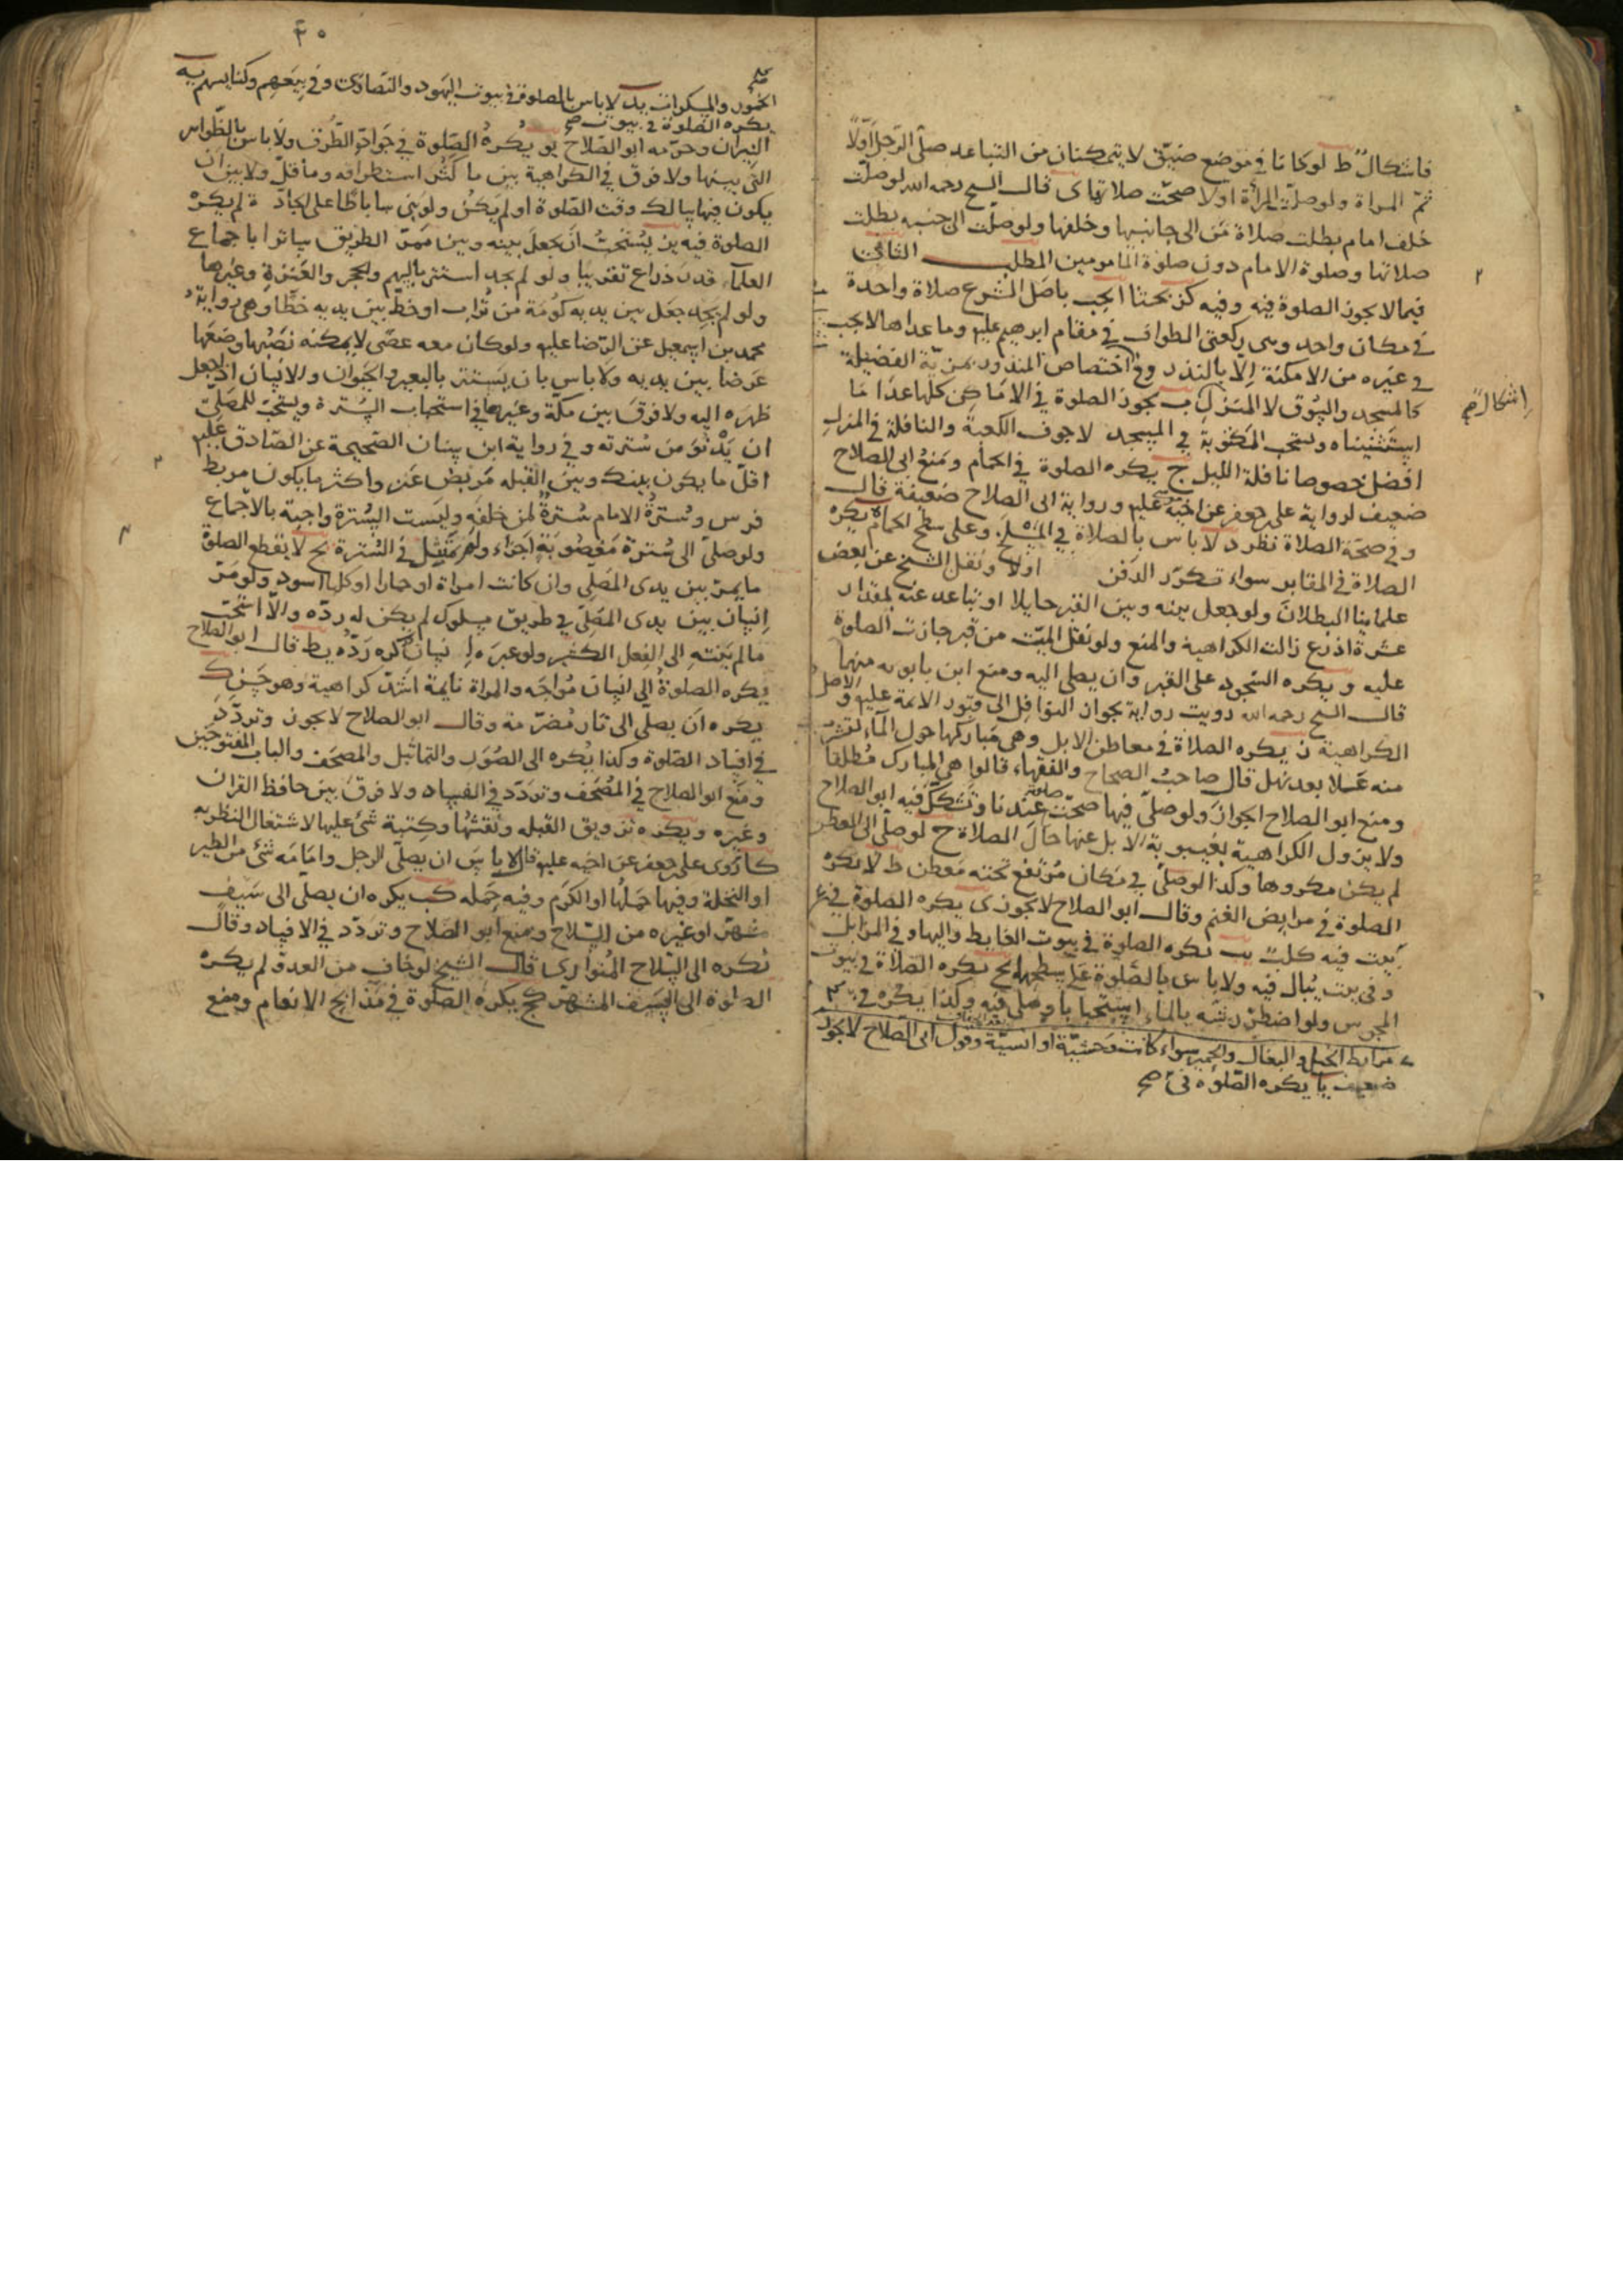 فاشكال ط لو كانا في موضع ضيق لا يتمكنان من التباعد صلى الرجل اولا
ثم المراة ولو صلت المرأة اولا صحت صلاتها ى قال الشيخ رحمه الله لو صلت
خلف امام بطلت صلاة من الى جانبيها وخلفها ولو صلت الى جنبه بطلت
صلاتها وصلوة الامام دون صلوة المامومين المطلب الثاني
فيما لا يجوز الصلوة فيه وفيه كز بحثا ا يجب باصل الشرع صلاة واحدة
في مكان واحد وهى ركعتى الطواف في مقام ابرهيم عليه وما عداها لا يجب
في غيره من الامكنة الا بالنذر وفي اختصاص المنذور بمزية الفضيلة
كالمسجد والسوق لا المنزل اشكال صح
ب يجوز الصلوة في الاماكن كلها عدا ما
استثنيناه ويستحب المكتوبة في المسجد لا جوف الكعبة والنافلة في المنزل
افضل خصوصا نافلة الليل ج يكره الصلوة في الحمام ومنع ابى الصلاح
ضعيف لرواية على بن جعفر عن اخيه عليه ورواية ابى الصلاح ضعيفة قال
وفي صحة الصلاة نظر د لا باس بالصلاة في المسلخ وعلى سطح الحمام ه يكره
الصلاة في المقابر سواء تكرر الدفن اولا ونقل الشيخ عن بعض
علمائنا البطلان ولو جعل بينه وبين القبر حايلا او تباعد عنه بمقدار
عشرة اذرع زالت الكراهية والمنع ولو نقل الميت من قبر جازت الصلوة
عليه و يكره السجود على القبر وان يصلى اليه ومنع ابن بابويه منها
قال الشيخ رحمه الله رويت رواية بجواز النوافل الى قبور الائمة عليهم والاصل
الكراهية ز يكره الصلاة في معاطن الابل وهى مباركها حول الماء لتشرب
منه عللا بعد نهل قال صاحب الصحاح والفقهاء قالوا هى المبارك مطلقا
ومنع ابو الصلاح الجواز ولو صلى فيها صحت صلوته عندنا وتشكك فيه ابو الصلاح
ولا يزول الكراهية بغيبوبة الابل عنها حال الصلاة ح لو صلى الى العطن
لم يكن مكروها وكذا لو صلى في مكان مرتفع تحته معطن ط لا يكره
الصلوة في مرابض الغنم وقال ابو الصلاح لا يجوز ى يكره الصلوة في
مرابط الخيل والبغال والحمير سواء كانت وحشية او انسية وقول ابى الصلاح لا يجوز
ضعيف يا يكره الصلوة في صح
بيت فيه كلب يب يكره الصلوة في بيوت الغايط واليها وفي المزابل
وفي بيت يبال فيه ولا باس بالصلوة على سطحها يج يكره الصلاة في بيوت
المجوس ولو اضطر رشه بالماء استحبابا وصلى فيه وكذا يكره في بيوت
٤٠
الخمور والمسكرات يد لا باس بالصلوة في بيوت اليهود والنصارى وفي بيعهم وكنايسهم يه
يكره الصلوة في بيوت صح
النيران وحرمه ابو الصلاح يو يكره الصلوة في جواد الطرق ولا باس بالظواهر
التي بينها ولا فرق في الكراهية بين ما كثر استطراقه وما قل ولا بين ان
يكون فيها سالك وقت الصلوة او لم يكن ولو بنى ساباطا على الجادة لم يكره
الصلوة فيه يز يستحب ان يجعل بينه وبين ممر الطريق ساترا باجماع
العلماء قدر ذراع تقريبا ولو لم يجد استتر بالسهم والحجر والعنزة وغيرها
ولو لم يجد جعل بين يديه كومة من تراب او خط بين يديه خطا وهى رواية
محمد بن اسمعيل عن الرضا عليه ولو كان معه عصى لا يمكنه نصبها وضعها
عرضا بين يديه ولا باس بان يستتر بالبعير والحيوان والانسان اذا جعل
ظهره اليه ولا فرق بين مكة وغيرها في استحباب السترة ويستحب للمصلي
ان يدنو من سترته وفي رواية ابن سنان الصحيحة عن الصادق عليه
اقل ما يكون بينك وبين القبله مربض عنز واكثر ما يكون مربط
فرس وسترة الامام سترة لمن خلفه وليست السترة واجبة بالاجماع
ولو صلى الى سترة مغصوبة اجزاء ولم يمتثل في السترة يح لا يقطع الصلوة
ما يمر بين يدى المصلى وان كانت امراة او حمارا او كلبا اسود ولو مر
انسان بين يدى المصلى في طريق مسلوك لم يكن له رده والا استحب
ما لم ينته الى الفعل الكثير ولو عبره انسان كره رده يط قال ابو الصلاح
يكره الصلوة الى انسان مواجه والمراة نايمة اشد كراهية وهو حسن ك
يكره ان يصلى الى نار مضرمة وقال ابو الصلاح لا يجوز وتردد
في افساد الصلوة وكذا يكره الى الصور والتماثيل والمصحف والباب المفتوحين
ومنع ابو الصلاح في المصحف وتردد في الفساد ولا فرق بين حافظ القران
وغيره ويكره تزويق القبله ونقشها وكتبة شئ عليها لاشتغال النظر به
كا روى على بن جعفر عن اخيه عليه قال لا باس ان يصلى الرجل وامامه شئ من الطير
او النخلة وفيها حملها او الكرم وفيه حمله كب يكره ان يصلى الى سيف
مشهر او غيره من السلاح ومنع ابو الصلاح وتردد في الافساد وقال
يكره الى السلاح المتوارى قال الشيخ لو خاف من العدو لم يكره
الصلوة الى السيف المشهر كج يكره الصلوة في مذابح الانعام ومنع